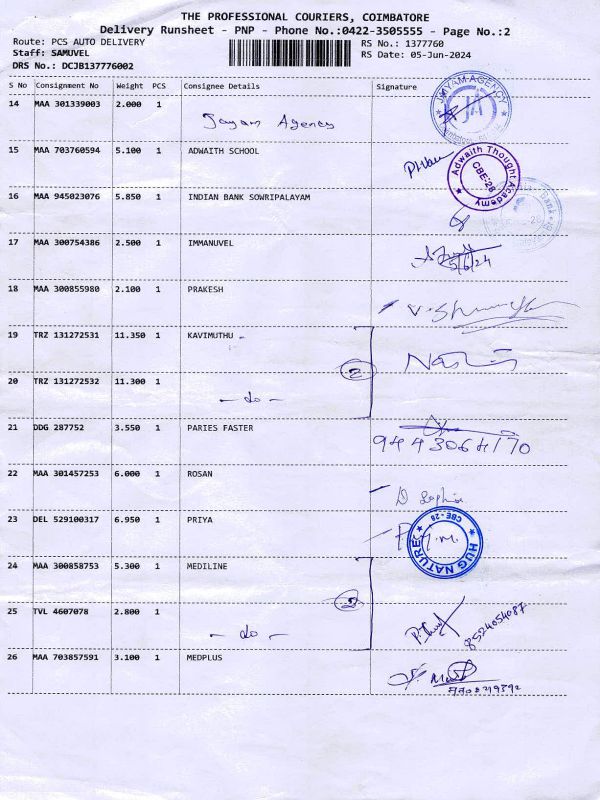 THE PROFESSIONAL COURIERS, COIMBATORE
Delivery Runsheet - PNP - Phone No.:0422-3505555 - Page No.:2
Route: PCS AUTO DELIVERY
RS No.: 1377760
Staff: SAMUVEL
RS Date: 05-Jun-2024
DRS No.: DCJB137776002
S No Consignment No Weight PCS Consignee Details Signature
14 MAA 301339003 2.000 1 Jayam Agency
JAYAM AGENCY
JA
15 MAA 703760594 5.100 1 ADWAITH SCHOOL
Adwaith Thought Academy
CBE-28
16 MAA 945023076 5.850 1 INDIAN BANK SOWRIPALAYAM
17 MAA 300754386 2.500 1 IMMANUVEL
5/6/24
18 MAA 300855980 2.100 1 PRAKESH
19 TRZ 131272531 11.350 1 KAVIMUTHU
2
20 TRZ 131272532 11.300 1 - do -
21 DDG 287752 3.550 1 PARIES FASTER
9443064170
22 MAA 301457253 6.000 1 ROSAN
23 DEL 529100317 6.950 1 PRIYA
HUG NATURE
CBE-28
24 MAA 300858753 5.300 1 MEDILINE
2
25 TVL 4607078 2.800 1 - do -
8524054087
26 MAA 703857591 3.100 1 MEDPLUS